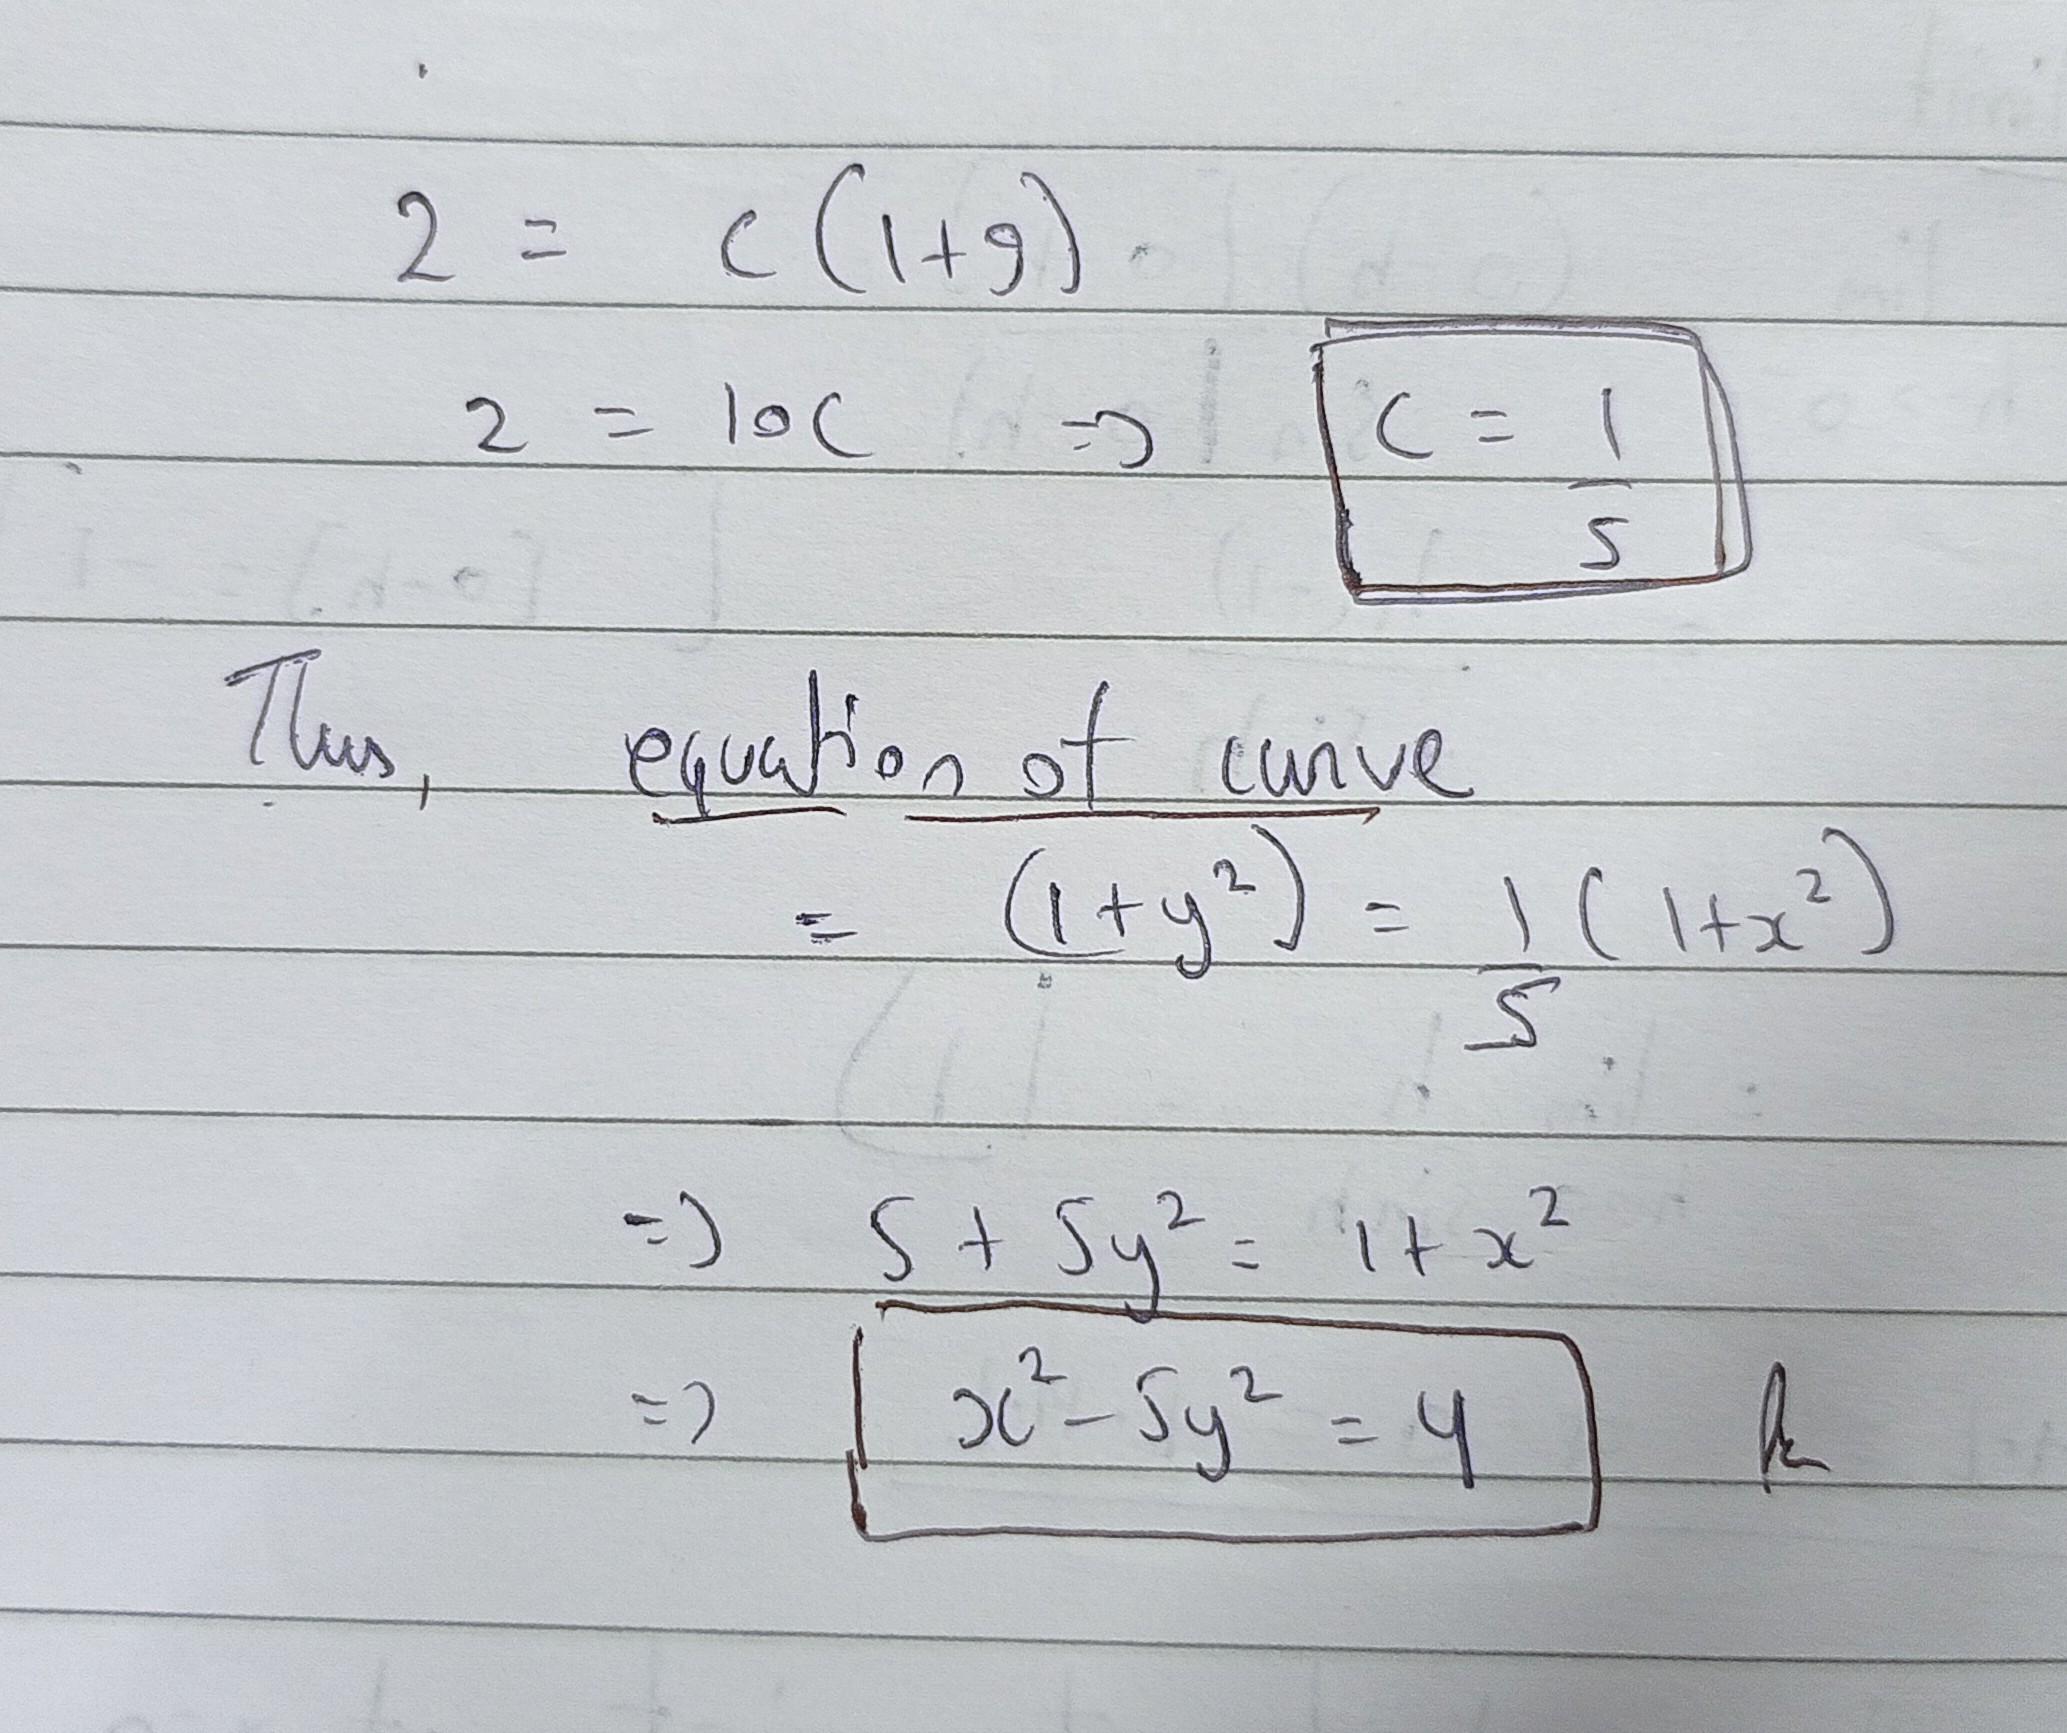 2 = c(1+9)
2 = 10c => c = 1/5
Thus, equation of curve
= (1+y²) = 1/5 (1+x²)
=> 5 + 5y² = 1 + x²
=> x² - 5y² = 4